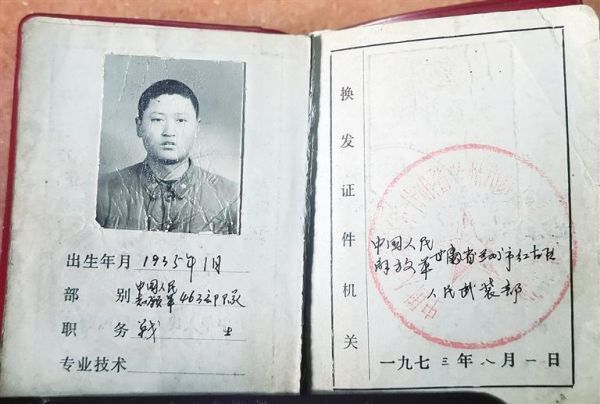 出生年月 1935年1月
部别 中国人民志愿军463部队
职务 战士
专业技术
换发证件机关
中国人民
解放军甘肃省兰州市红古区
人民武装部
一九七三年八月一日